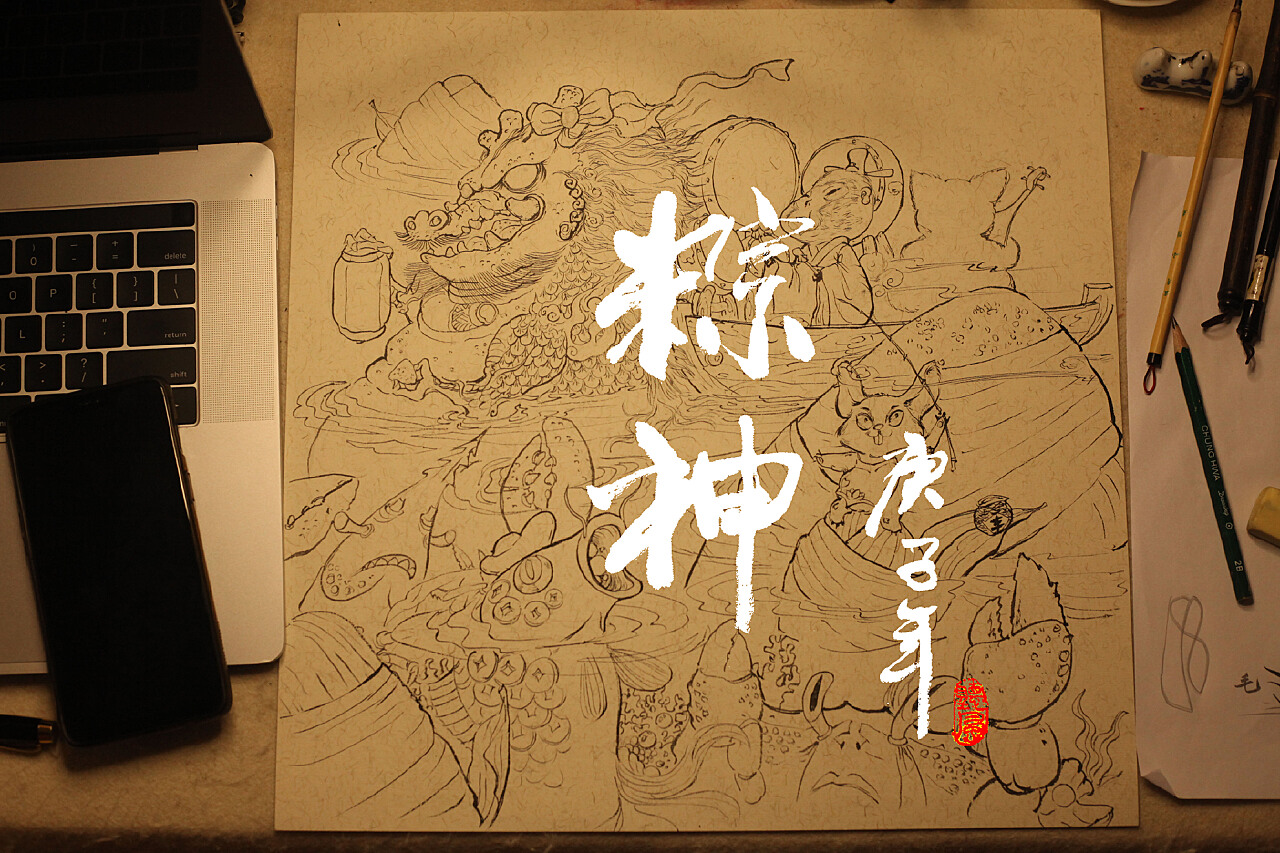 粽神
庚子年
0 - + = delete
O P { [ } ] | \
L : ; " ' return
< > ? / shift
CHUNG HWA
2B
毛